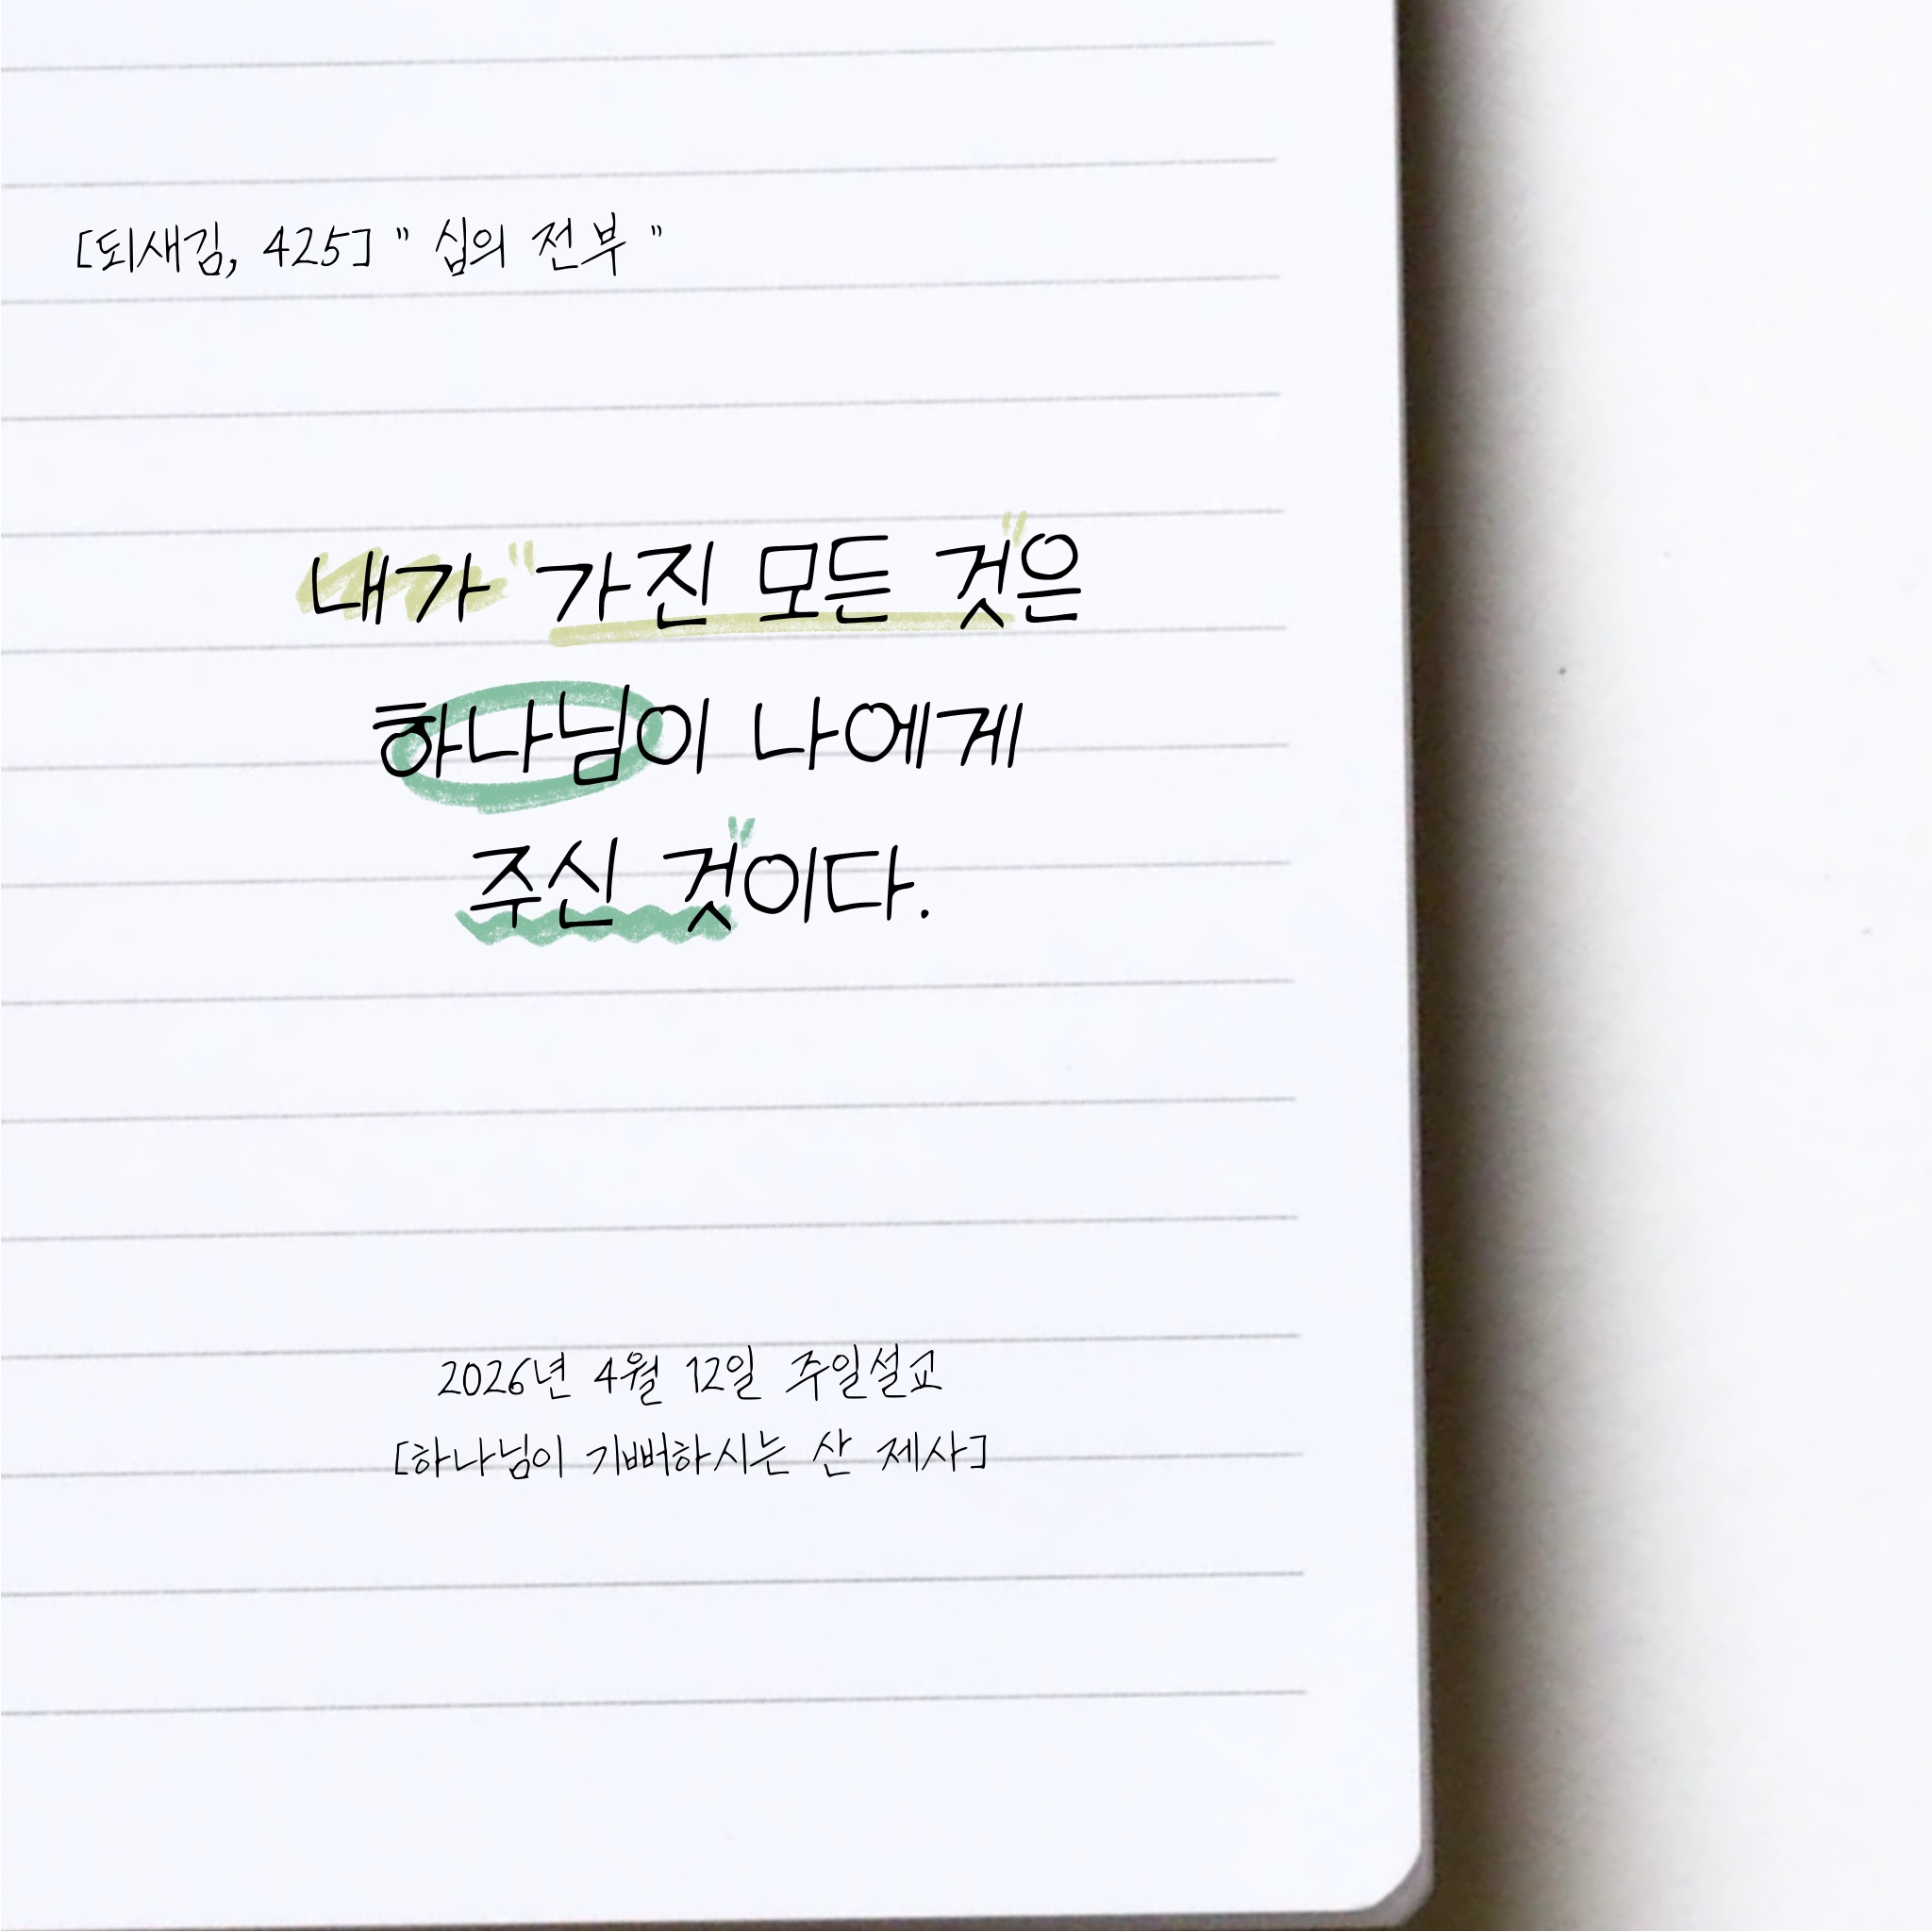 [되새김, 425] " 십의 전부 "
내가 "가진 모든 것"은
하나님이 나에게
주신 것"이다.
2026년 4월 12일 주일설교
[하나님이 기뻐하시는 산 제사]